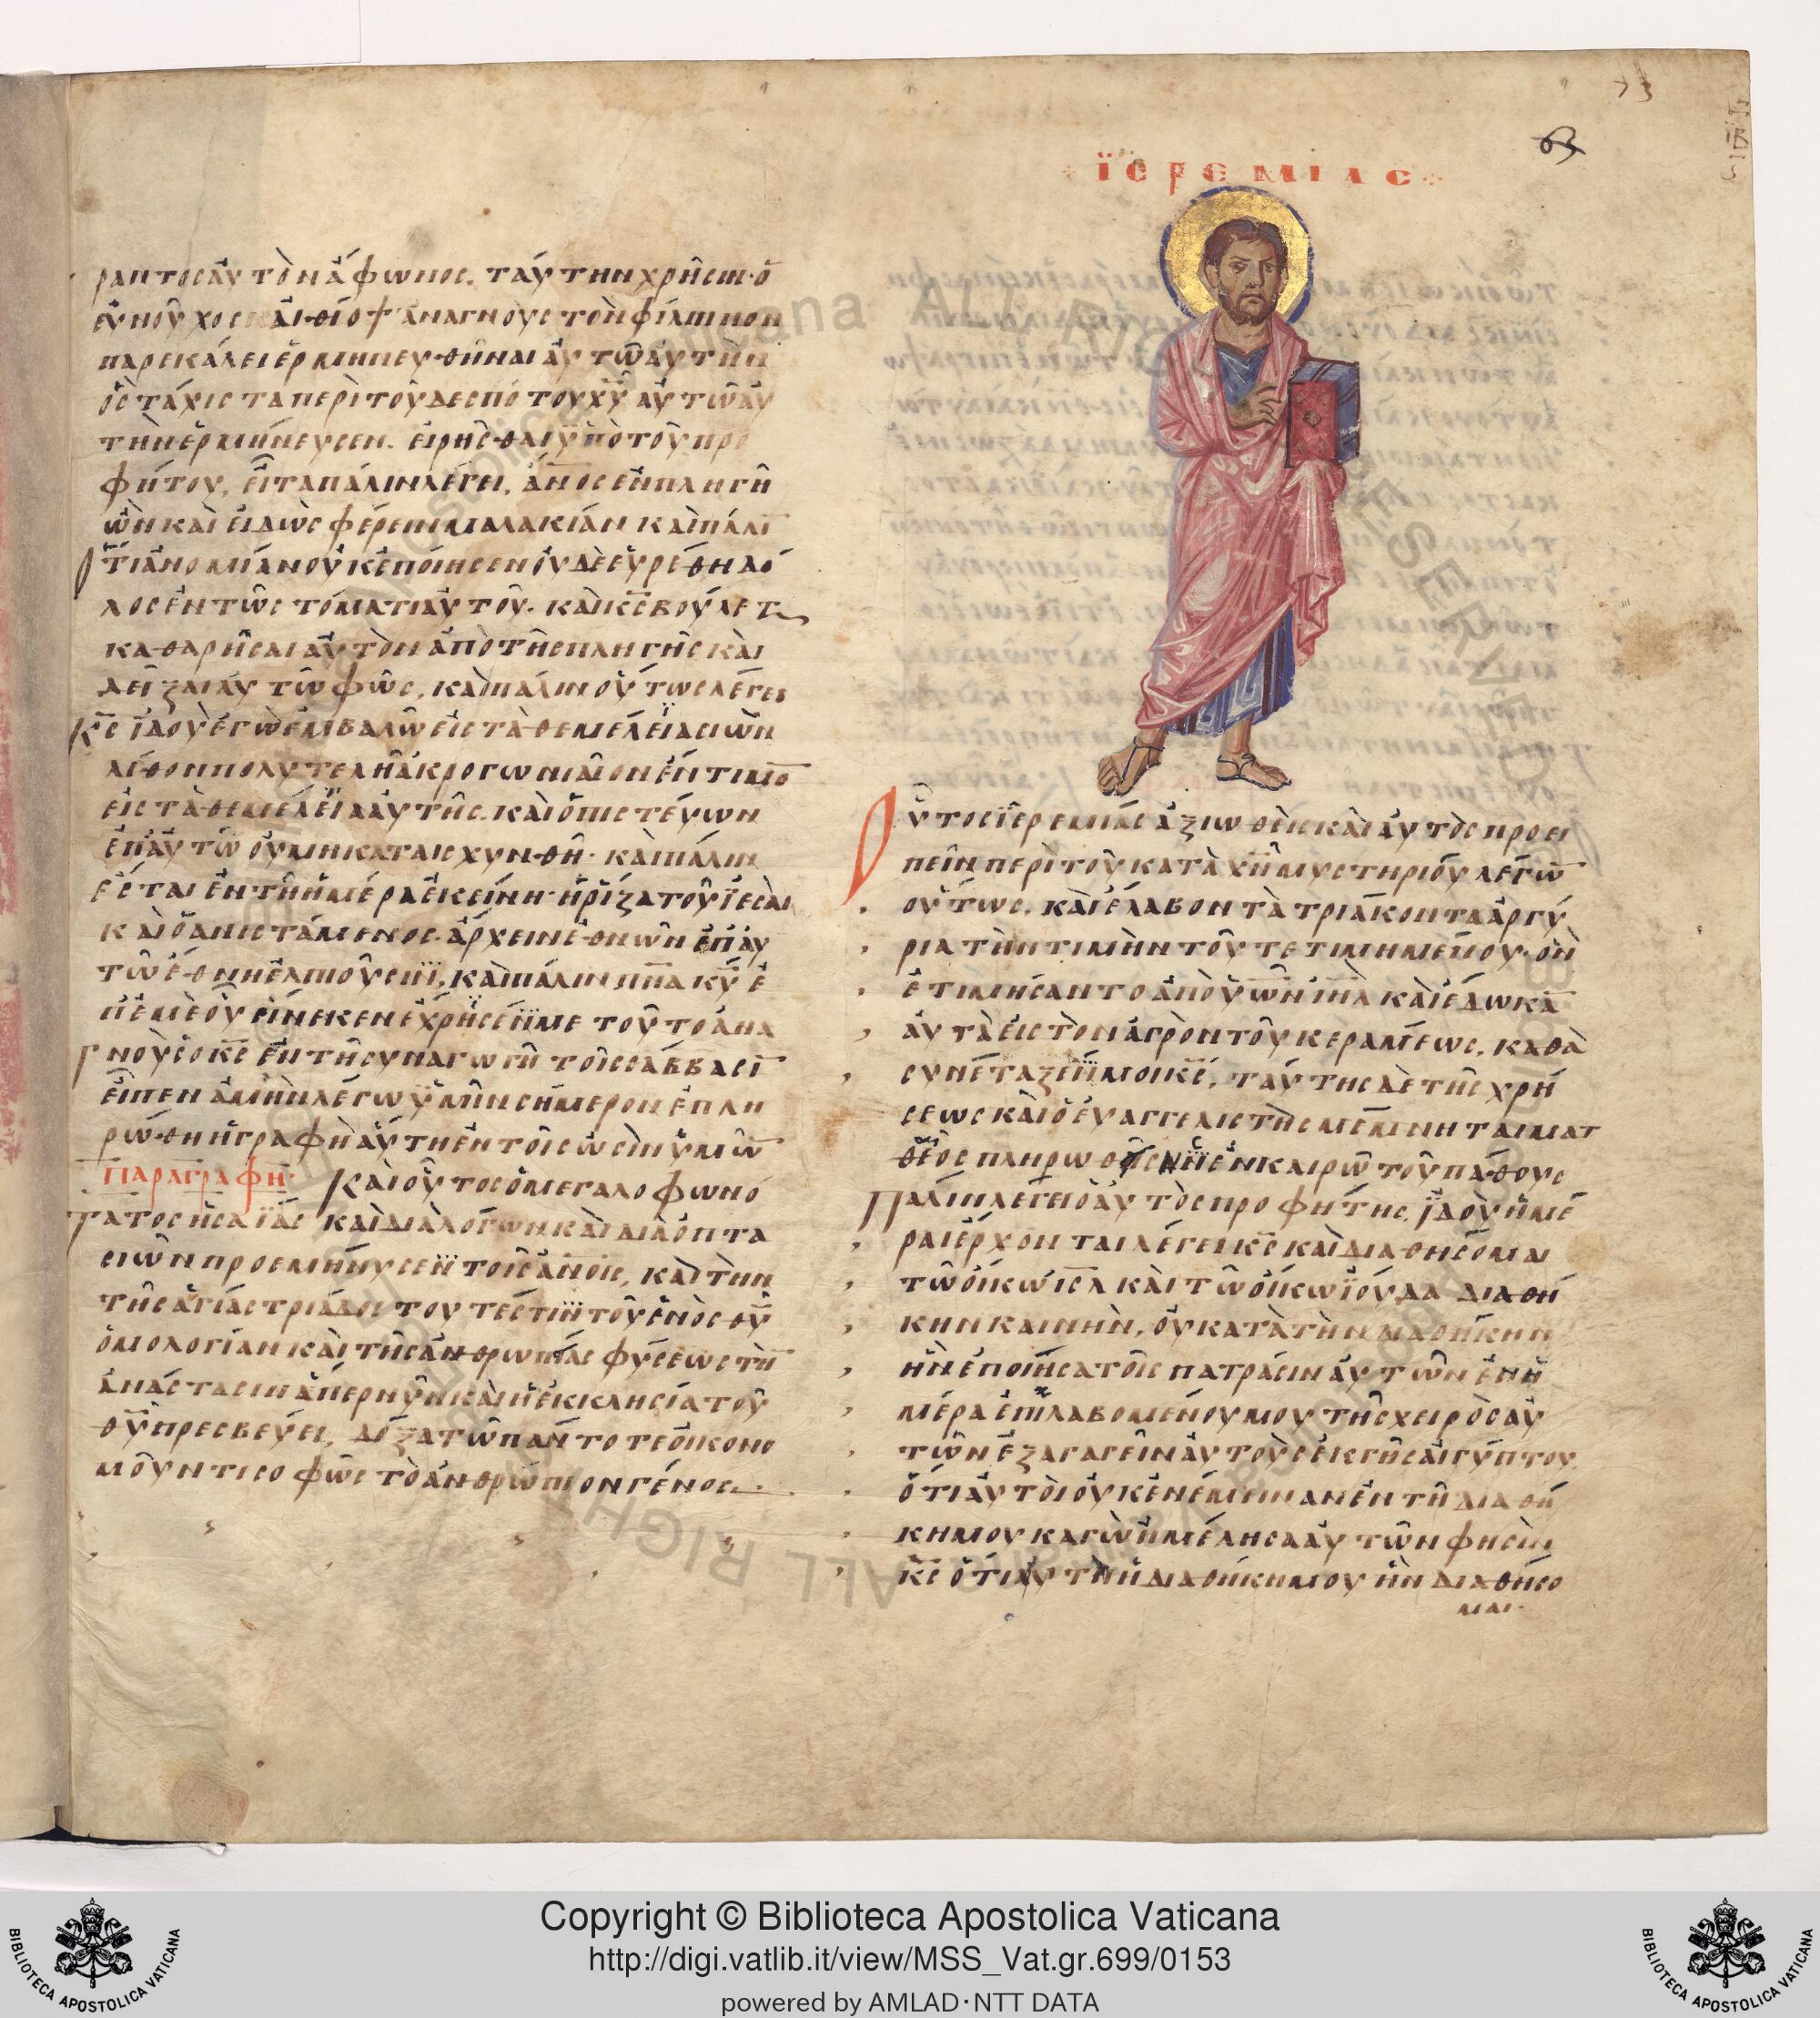 73
63
ΪΕΡΕΜΙΑC
ραντοσ αὐτὸν ἄφωνοσ. ταύτην χρῆσιν· ὁ
εὐνοῦχος αἰθίοψ ἀναγνοὺς τὸν φίλιππον
παρεκάλει ἑρμηνευθῆναι αὐτῶ αὐτὴν
ὃς τάχιστα περὶ τοῦ δεσπότου χυ αὐτῶ αὐ
τὴν ἑρμήνευσεν. εἰρῆσθαι ὑπὸ τοῦ προ
φήτου, εἶτα πάλιν λέγει, ανος ἐν πληγῆ
ὢν καὶ εἰδὼς φέρειν μαλακίαν καὶ πάλι
ὅτι ἀνομίαν οὐκ ἐποίησεν οὐδὲ εὑρέθη δό
λος ἐν τῶ στόματι αὐτοῦ. καὶ κς βούλεται
καθαρῆσαι αὐτὸν ἀπὸ τῆς πληγῆς καὶ
δεῖξαι αὐτῶ φῶς, καὶ πάλιν οὕτως λέγει
κς ἰδοὺ ἐγὼ ἐμβαλῶ εἰς τὰ θεμέλεια σιὼν
λίθον πολυτελῆ ἀκρογωνιαῖον ἔντιμο
εἰς τὰ θεμέλεια αὐτῆς. καὶ ὁ πιστεύων
ἐπ' αὐτῶ οὐ μὴ καταισχυνθῆ· καὶ πάλιν
ἔσται ἐν τῆ ἡμέρα ἐκείνη· ἡ ῥίζα τοῦ ἰεσσαὶ
καὶ ὁ ἀνιστάμενος. ἄρχειν ἐθνῶν ἐπ' αὐ
τῶ ἔθνη ἐλπιοῦσιν, καὶ πάλιν πνα κυ ἐ
π' ἐμὲ οὗ εἵνεκεν ἔχρισέν με τοῦτο ἀνα
γνοὺς ὁ κς ἐν τῆ συναγωγῆ τοῖς σάββασι
εἶπεν ἀμὴν λέγω ὑμῖν σήμερον ἐπλη
ρώθη ἡ γραφὴ αὕτη ἐν τοῖς ὠσὶν ὑμῶ
Παραγραφή· Καὶ οὗτος ὁ μεγαλοφωνό
τατος ἡσαΐας καὶ διὰ λόγων καὶ διὰ ὀπτα
σιῶν προεμήνυσεν τοῖς ανοις, καὶ τὴν
τῆς ἁγίας τριάδος τουτέστιν τοῦ ἑνὸς θυ
ὁμολογίαν καὶ τῆς ἀνθρωπίας φύσεως τὴν
ἀνάστασιν ἅπερ νῦν καὶ ἡ ἐκκλησία τοῦ
θυ πρεσβεύει, δόξα τῶ πάντοτε οἰκονο
μοῦντι σοφῶς τὸ ἀνθρώπιον γένος.
Οὗτος ἱερεμίας ἀξιωθεὶς καὶ αὐτὸς προει
πεῖν περὶ τοῦ κατὰ χν μυστηρίου λέγω
οὕτως, καὶ ἔλαβον τὰ τριάκοντα ἀργύ
ρια τὴν τιμὴν τοῦ τετιμημένου· ὃν
ἐτιμήσαντο ἀπὸ υων ιηλ καὶ ἔδωκα
αὐτὰ εἰς τὸν ἀγρὸν τοῦ κεραμέως, καθὰ
συνέταξέν μοι κς, ταύτης δὲ τῆς χρή
σεως καὶ ὁ εὐαγγελιστὴς μέμνηται ματ
θέος πληρωθείσης ἐν καιρῶ τοῦ πάθους
Πάλιν λέγει ὁ αὐτὸς προφήτης, ἰδοὺ ἡμέ
ραι ἔρχονται λέγει κς καὶ διαθήσομαι
τῶ οἴκω ισλ καὶ τῶ οἴκω ἰούδα διαθή
κην καινὴν, οὐ κατὰ τὴν διαθήκην
ἣν ἐποίησα τοῖς πατράσιν αὐτῶν ἐν ἡ
μέρα ἐπιλαβομένου μου τῆς χειρὸς αὐ
τῶν ἐξαγαγεῖν αὐτοὺς ἐκ γῆς αἰγύπτου,
ὅτι αὐτοὶ οὐκ ἐνέμειναν ἐν τῆ διαθή
κη μου καγὼ ἠμέλησα αὐτῶν φησὶν
κς ὅτι αὕτη ἡ διαθήκη μου ἣν διαθήσο
μαι·
Copyright © Biblioteca Apostolica Vaticana
http://digi.vatlib.it/view/MSS_Vat.gr.699/0153
powered by AMLAD·NTT DATA
BIBLIOTECA APOSTOLICA VATICANA
BIBLIOTECA APOSTOLICA VATICANA